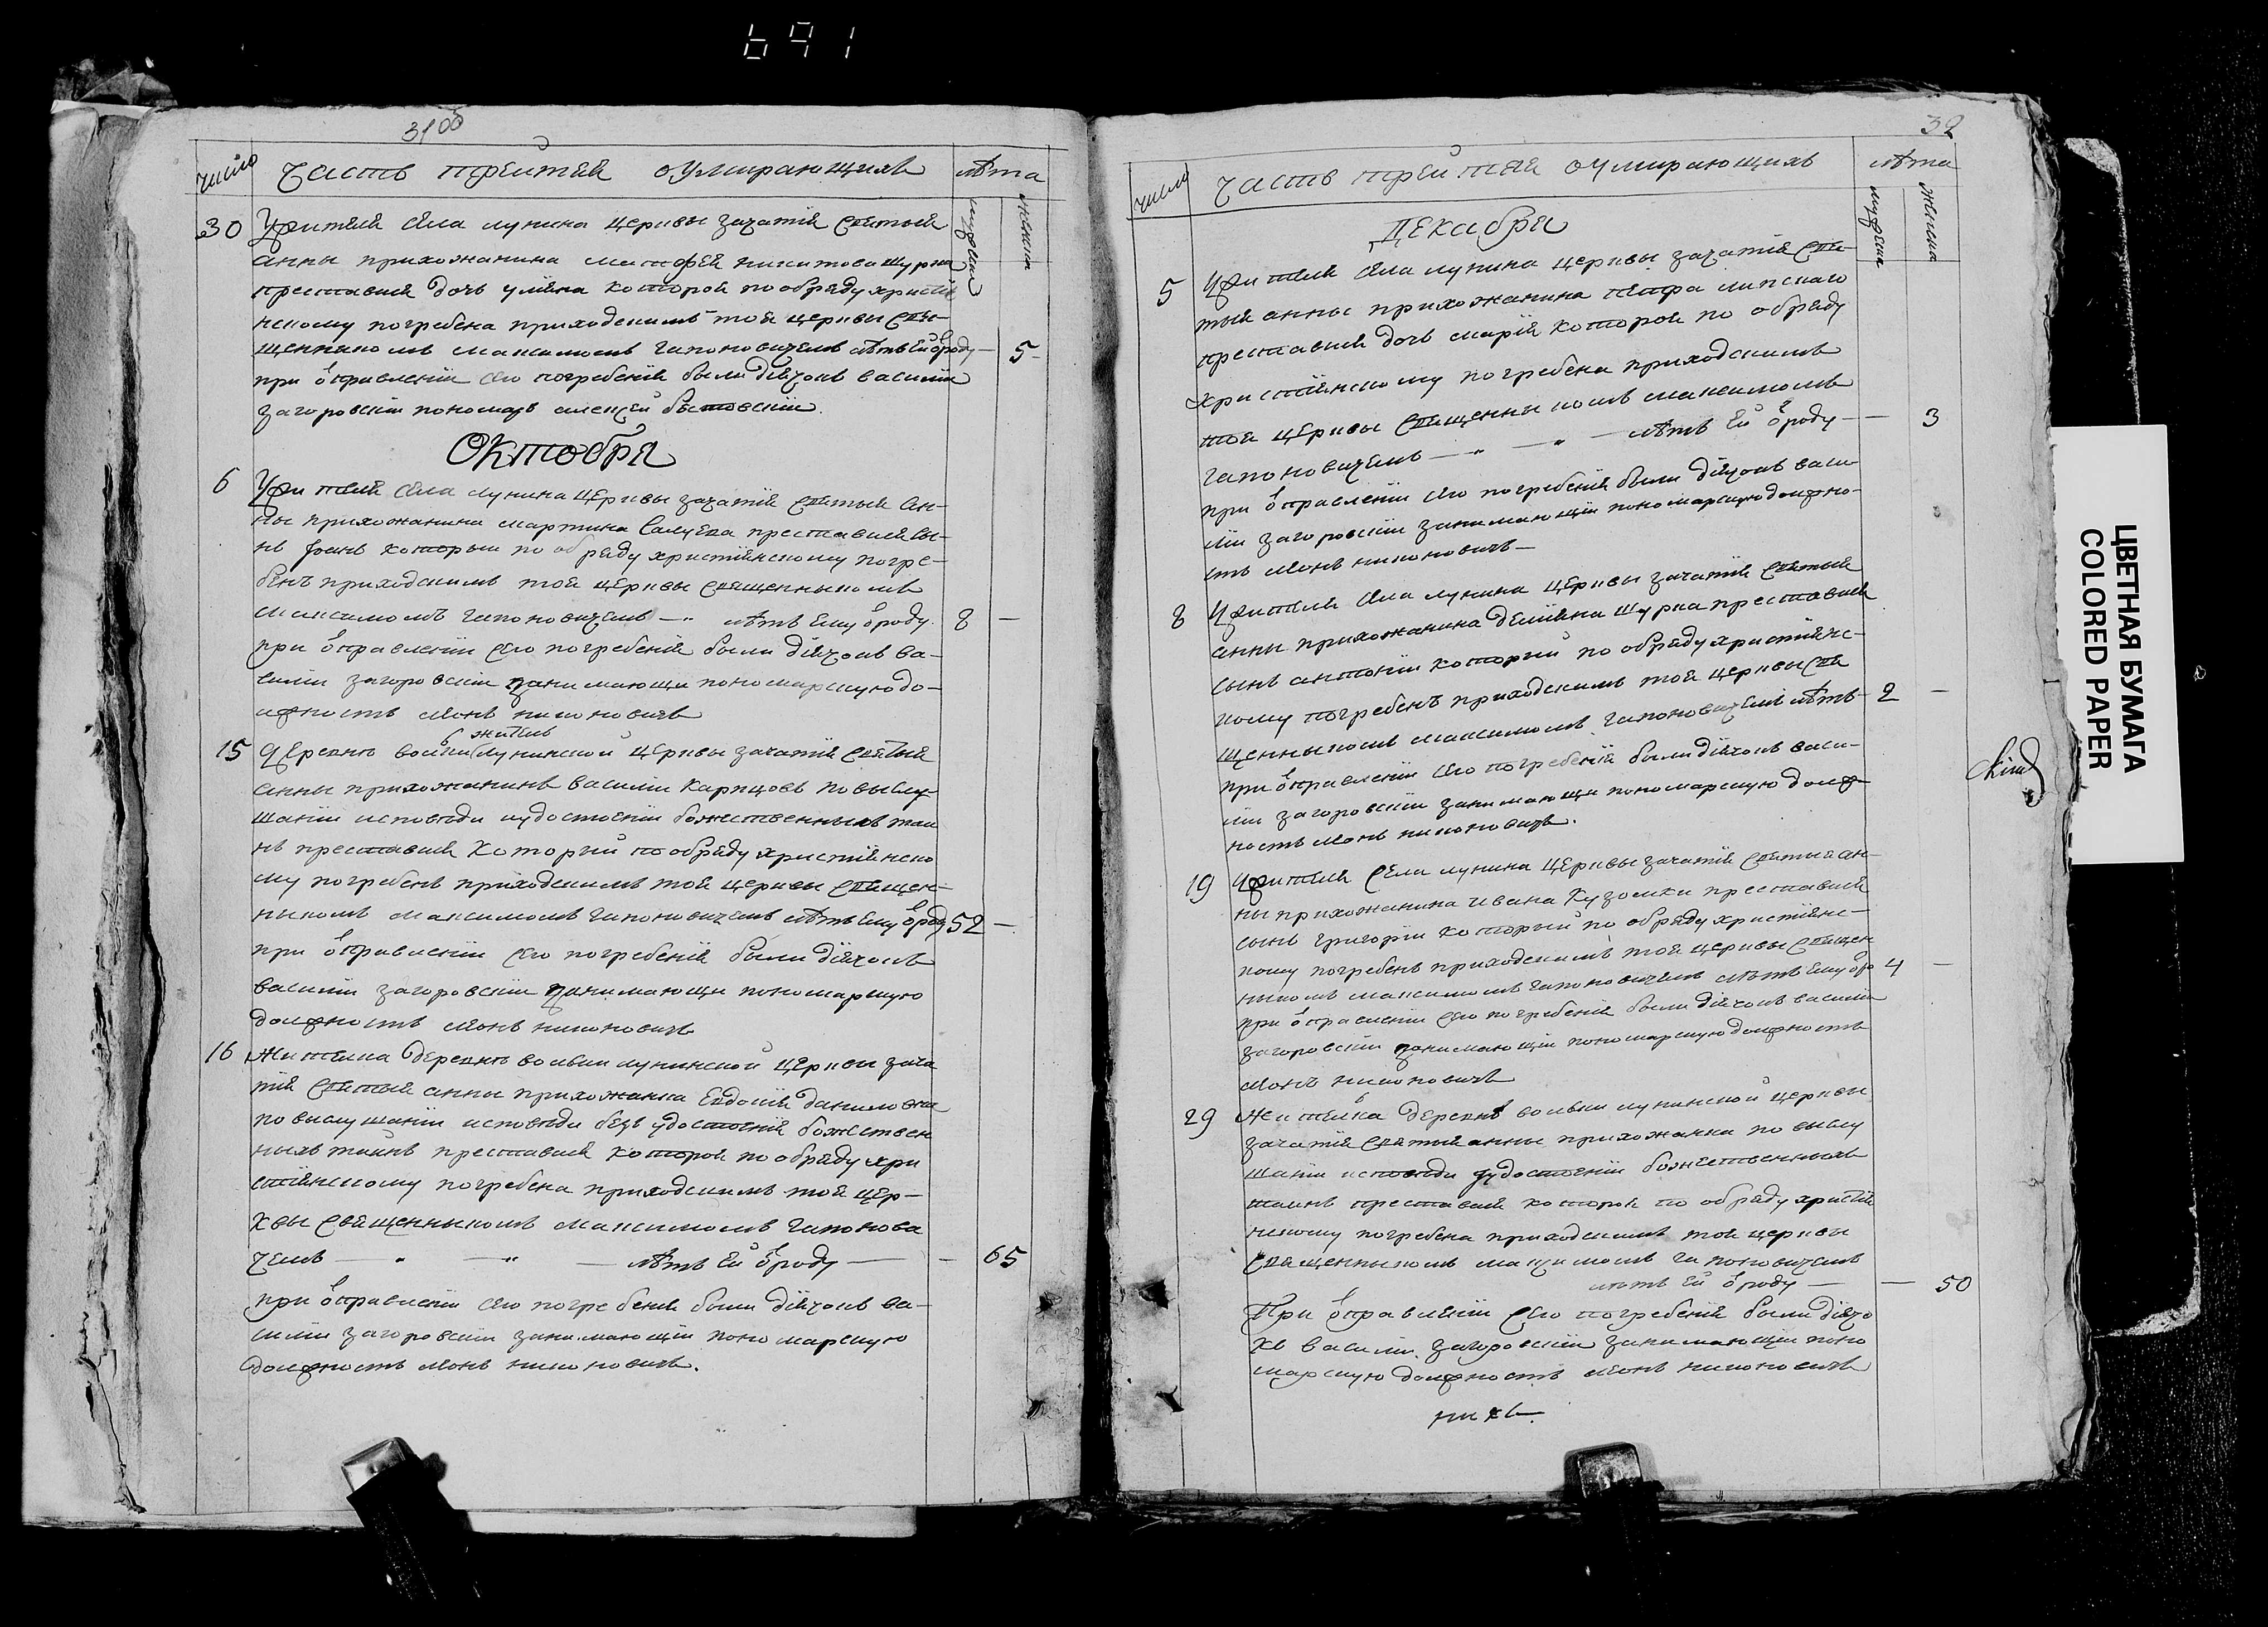 691
31 об
число Часть третія оумирающихъ лѣта
мужеска женска
30 Жителя села лунина церквы зачатія святыя
анны прихожанина матфея никитова шурпа
преставися дочь уліяна которая по обряду христія
нскому погребена приходскимъ тоя церквы свя-
щенникомъ максимомъ гапоновичемъ лѣтъ ей ѿроду — 5
при ѿправленіи сего погребенія были діячокъ василій
загоровскій пономаръ алексей бытовскій.
Октобря
6 Жителя села лунина церквы зачатія святыя ан-
ны прихожанина мартина преставися сы-
нъ который по обряду христіянскому погре-
бенъ приходскимъ тоя церквы священникомъ
максимомъ гапоновичемъ — " лѣтъ ему ѿроду 8 —
при ѿправленіи сего погребенія были діячокъ ва-
силій загоровскій занимающи пономарскую до-
лжность леонъ никоновичъ
житель
15 Деревнѣ вольки лунинской церквы зачатія святыя
анны прихожанинъ василій карпцовъ по выслу-
шаніи исповѣди удостоеніи божественныхъ таи
нъ преставися который по обряду христіянско
му погребенъ приходскимъ тоя церквы священ-
никомъ максимомъ гапоновичемъ лѣтъ ему ѿроду 52 —
при ѿправленіи сего погребенія были діячокъ
василій загоровскій занимающи пономарскую
должность леонъ никоновичъ
16 Жителка деревнѣ вольки лунинской церквы зача
тія святыя анны прихожанка евдокія данилова
по выслушаніи исповѣди безъ удостоенія божествен
ныхъ таинъ преставися которая по обряду хри
стіянскому погребена приходскимъ тоя цер-
квы священникомъ максимомъ гапонови
чемъ — " — " — лѣтъ ей ѿроду — — 65
при ѿправленіи сего погребенія были діячокъ ва-
силій загоровскій занимающій пономарскую
должность леонъ никоновичъ.
32
число Часть третія оумирающихъ лѣта
мужеска женска
Декабря
5 Жителя села лунина церквы зачатія свя-
тыя анны прихожанина липскаго
преставися дочь марія которая по обряду
христіянскому погребена приходскимъ
тоя церквы священникомъ максимомъ
гапоновичемъ — " — лѣтъ ей ѿроду — — 3
при ѿправленіи сего погребенія были діячокъ васи-
лій загоровскій занимающій пономарскую должно-
сть леонъ никоновичъ —
8 Жителя села лунина церквы зачатія святыя
анны прихожанина деміяна шурпа преставися
сынъ антоній который по обряду христіянс-
кому погребенъ приходскимъ тоя церквы свя
щенникомъ максимомъ гапоновичемъ лѣтъ — 2 —
при ѿправленіи сего погребенія были діячокъ васи-
лій загоровскій занимающи пономарскую долж-
ность леонъ никоновичъ.
19 Жителя села лунина церквы зачатія святыя ан-
ны прихожанина ивана кузомки преставися
сынъ григорій который по обряду христіянс-
кому погребенъ приходскимъ тоя церквы священ
никомъ максимомъ гапоновичемъ лѣтъ ему ѿро 4 —
при ѿправленіи сего погребенія были діячокъ василій
загоровскій занимающій пономарскую должность
леонъ никоновичъ
29 Жителка деревнѣ вольки лунинской церквы
зачатія святыя анны прихожанка по выслу
шаніи исповѣди удостоеніи божественныхъ
таинъ преставися которая по обряду христія
нскому погребена приходскимъ тоя церквы
священникомъ максимомъ гапоновичемъ
лѣтъ ей ѿроду — — 50
При ѿправленіи сего погребенія были діячо
къ василій загоровскій занимающи поно
марскую должность леонъ никоновичъ
ЦВЕТНАЯ БУМАГА
COLORED PAPER